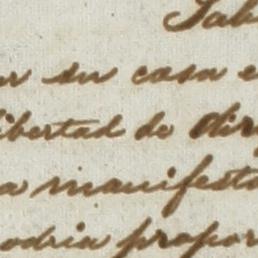 Sab
er su casa e
libertad de dir
a manifesta
odria propor